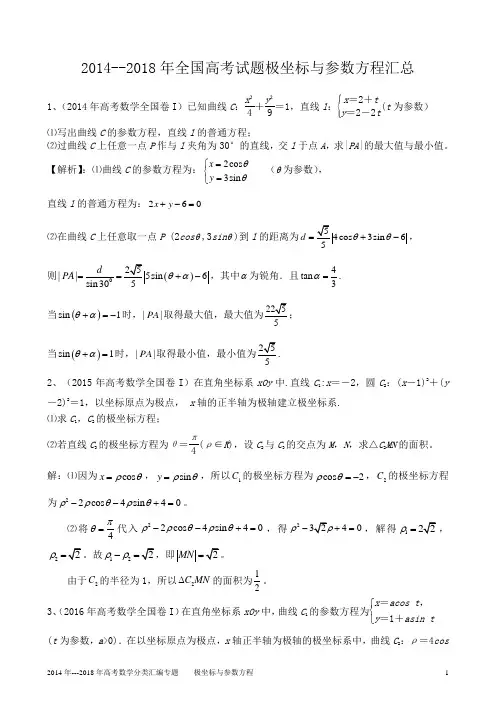 2014--2018年全国高考试题极坐标与参数方程汇总
1、(2014年高考数学全国卷I)已知曲线C：x²/4＋y²/9＝1，直线l：{x＝2＋t y＝2－2t (t为参数)
⑴写出曲线C的参数方程，直线l的普通方程；
⑵过曲线C上任意一点P作与l夹角为30°的直线，交l于点A，求|PA|的最大值与最小值。
【解析】：⑴曲线C的参数方程为：{x=2cosθ y=3sinθ (θ为参数)，
直线l的普通方程为：2x+y−6=0
⑵在曲线C上任意取一点P (2cosθ,3sinθ)到l的距离为d=√5/5|4cosθ+3sinθ−6|，
则|PA|=d/sin30⁰=2√5/5|5sin(θ+α)−6|，其中α为锐角．且tanα=4/3．
当sin(θ+α)=−1时，|PA|取得最大值，最大值为22√5/5；
当sin(θ+α)=1时，|PA|取得最小值，最小值为2√5/5．
2、(2015年高考数学全国卷I)在直角坐标系xOy中.直线C₁:x＝－2，圆C₂：(x－1)²＋(y
－2)²＝1，以坐标原点为极点， x轴的正半轴为极轴建立极坐标系.
⑴求C₁，C₂的极坐标方程；
⑵若直线C₃的极坐标方程为θ＝π/4(ρ∈R)，设C₂与C₃的交点为M，N，求△C₂MN的面积。
解：⑴因为x=ρcosθ，y=ρsinθ，所以C₁的极坐标方程为ρcosθ=−2，C₂的极坐标方程
为ρ²−2ρcosθ−4ρsinθ+4=0。
⑵将θ=π/4代入ρ²−2ρcosθ−4ρsinθ+4=0，得ρ²−3√2ρ+4=0，解得ρ₁=2√2，
ρ₂=√2。故ρ₁−ρ₂=√2，即|MN|=√2。
由于C₂的半径为1，所以ΔC₂MN的面积为1/2。
3、(2016年高考数学全国卷I)在直角坐标系xOy中，曲线C₁的参数方程为{x＝acos t， y＝1＋asin t
(t为参数，a>0)．在以坐标原点为极点，x轴正半轴为极轴的极坐标系中，曲线C₂：ρ＝4cos
2014年---2018年高考数学分类汇编专题 极坐标与参数方程 1